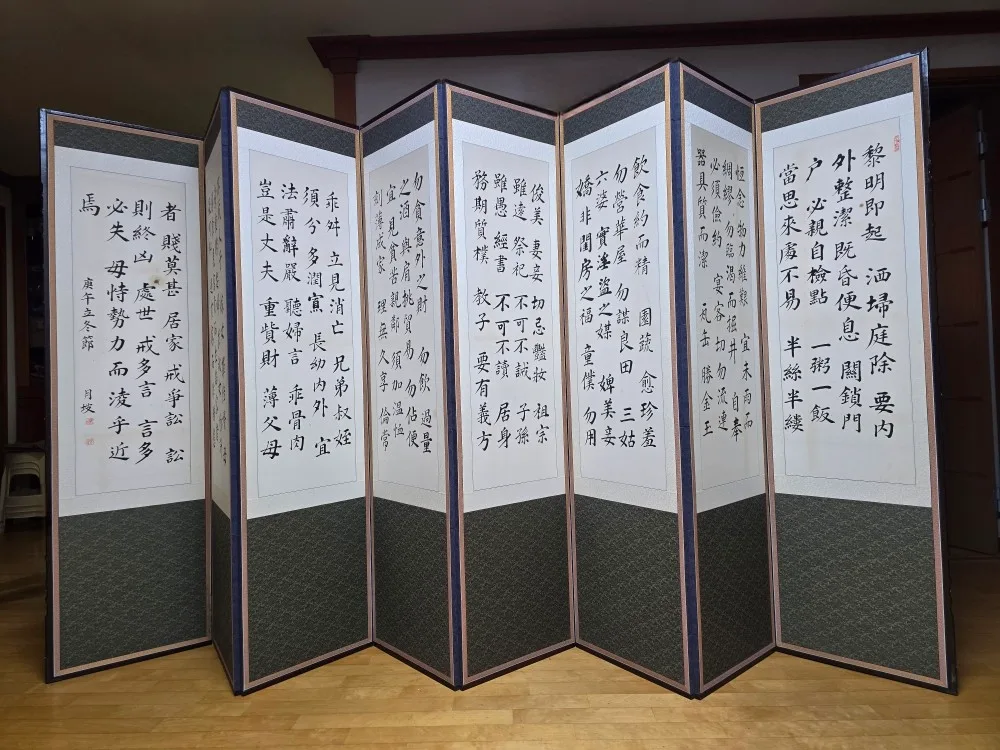 黎明即起 洒埽庭除 要内
外整潔 既昏便息 關鎖門
户 必親自檢點 一粥一飯
當思來處不易 半絲半縷
恒念物力維艱 宜未雨而
綢繆 勿臨渴而掘井 自奉
必須儉約 宴客切勿流連
器具質而潔 瓦缶勝金玉
飲食約而精 園蔬愈珍羞
勿營華屋 勿謀良田 三姑
六婆 實淫盜之媒 婢美妾
嬌 非閨房之福 童僕勿用
俊美 妻妾切忌艷妝 祖宗
雖遠 祭祀不可不誠 子孫
雖愚 經書不可不讀 居身
務期質樸 教子要有義方
勿貪意外之財 勿飲過量
之酒 與肩挑貿易 勿佔便
宜 見貧苦親鄰 須加温恤
刻薄成家 理無久享 倫常
乖舛 立見消亡 兄弟叔姪
須兮多潤寡 長幼内外 宜
法肅辭嚴 聽婦言 乖骨肉
豈是丈夫 重貲財 薄父母
者 賤莫甚 居家戒爭訟 訟
則終凶 處世戒多言 言多
必失 毋恃勢力而淩乎近
焉
庚午立冬節 月